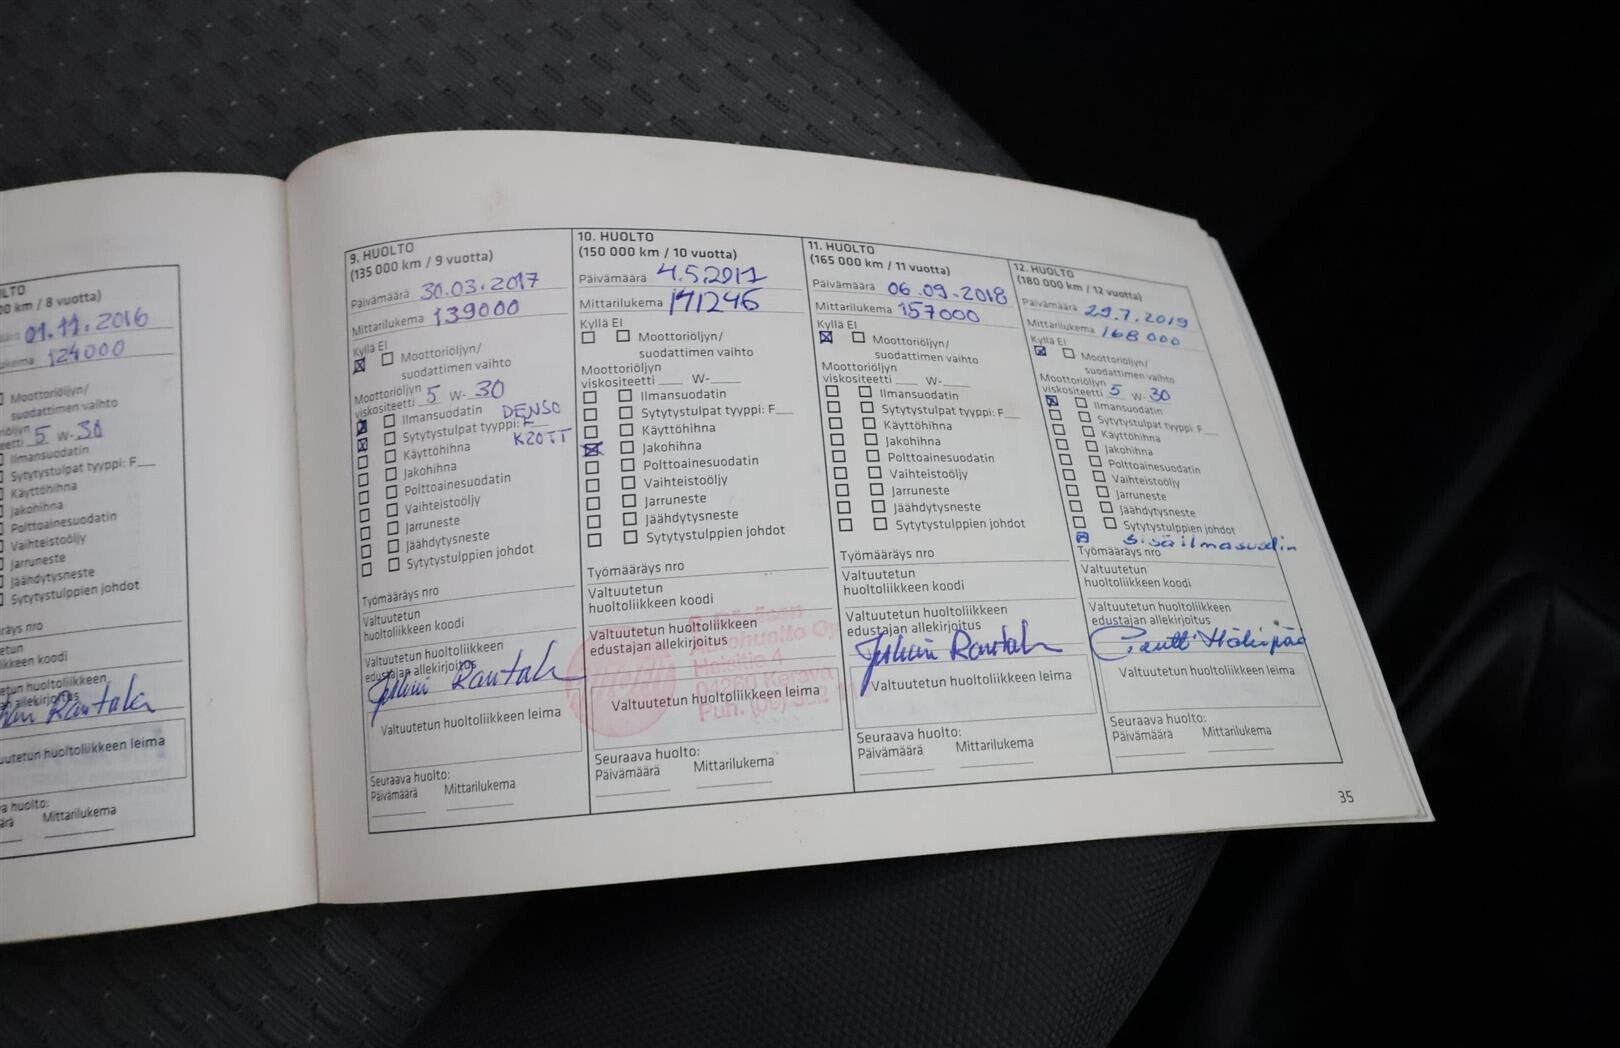 LTO
00 km / 8 vuotta)
01.11.2016
124000
Moottoriöljyn/
suodattimen vaihto
5 W- 30
Ilmansuodatin
Sytytystulpat tyyppi: F__
Käyttöhihna
Jakohihna
Polttoainesuodatin
Vaihteistoöljy
Jarruneste
Jäähdytysneste
Sytytystulppien johdot
äräys nro
iikkeen koodi
etun huoltoliikkeen
Rautala
uutetun huoltoliikkeen leima
a huolto:
Mittarilukema
9. HUOLTO
(135 000 km / 9 vuotta)
Päivämäärä 30.03.2017
Mittarilukema 139000
Kyllä EI
Moottoriöljyn/
suodattimen vaihto
Moottoriöljyn
viskositeetti 5 W- 30
Ilmansuodatin DENSO
Sytytystulpat tyyppi: F__
K20TT
Käyttöhihna
Jakohihna
Polttoainesuodatin
Vaihteistoöljy
Jarruneste
Jäähdytysneste
Sytytystulppien johdot
Työmääräys nro
Valtuutetun
huoltoliikkeen koodi
Valtuutetun huoltoliikkeen
edustajan allekirjoitus
Rautala
Valtuutetun huoltoliikkeen leima
Seuraava huolto:
Päivämäärä Mittarilukema
10. HUOLTO
(150 000 km / 10 vuotta)
Päivämäärä 4.5.2017
Mittarilukema 141246
Kyllä EI
Moottoriöljyn/
suodattimen vaihto
Moottoriöljyn
viskositeetti ___ W-___
Ilmansuodatin
Sytytystulpat tyyppi: F__
Käyttöhihna
Jakohihna
Polttoainesuodatin
Vaihteistoöljy
Jarruneste
Jäähdytysneste
Sytytystulppien johdot
Työmääräys nro
Valtuutetun
huoltoliikkeen koodi
Valtuutetun huoltoliikkeen
edustajan allekirjoitus
Kerava
Puh. (09)
Valtuutetun huoltoliikkeen leima
Seuraava huolto:
Päivämäärä Mittarilukema
11. HUOLTO
(165 000 km / 11 vuotta)
Päivämäärä 06.09.2018
Mittarilukema 157000
Kyllä EI
Moottoriöljyn/
suodattimen vaihto
Moottoriöljyn
viskositeetti ___ W-___
Ilmansuodatin
Sytytystulpat tyyppi: F__
Käyttöhihna
Jakohihna
Polttoainesuodatin
Vaihteistoöljy
Jarruneste
Jäähdytysneste
Sytytystulppien johdot
Työmääräys nro
Valtuutetun
huoltoliikkeen koodi
Valtuutetun huoltoliikkeen
edustajan allekirjoitus
Rautala
Valtuutetun huoltoliikkeen leima
Seuraava huolto:
Päivämäärä Mittarilukema
12. HUOLTO
(180 000 km / 12 vuotta)
Päivämäärä 29.7.2019
Mittarilukema 168 000
Kyllä EI
Moottoriöljyn/
suodattimen vaihto
Moottoriöljyn
viskositeetti 5 W- 30
Ilmansuodatin
Sytytystulpat tyyppi: F__
Käyttöhihna
Jakohihna
Polttoainesuodatin
Vaihteistoöljy
Jarruneste
Jäähdytysneste
Sytytystulppien johdot
Sisäilmasuodin
Työmääräys nro
Valtuutetun
huoltoliikkeen koodi
Valtuutetun huoltoliikkeen
edustajan allekirjoitus
Valtuutetun huoltoliikkeen leima
Seuraava huolto:
Päivämäärä Mittarilukema
35